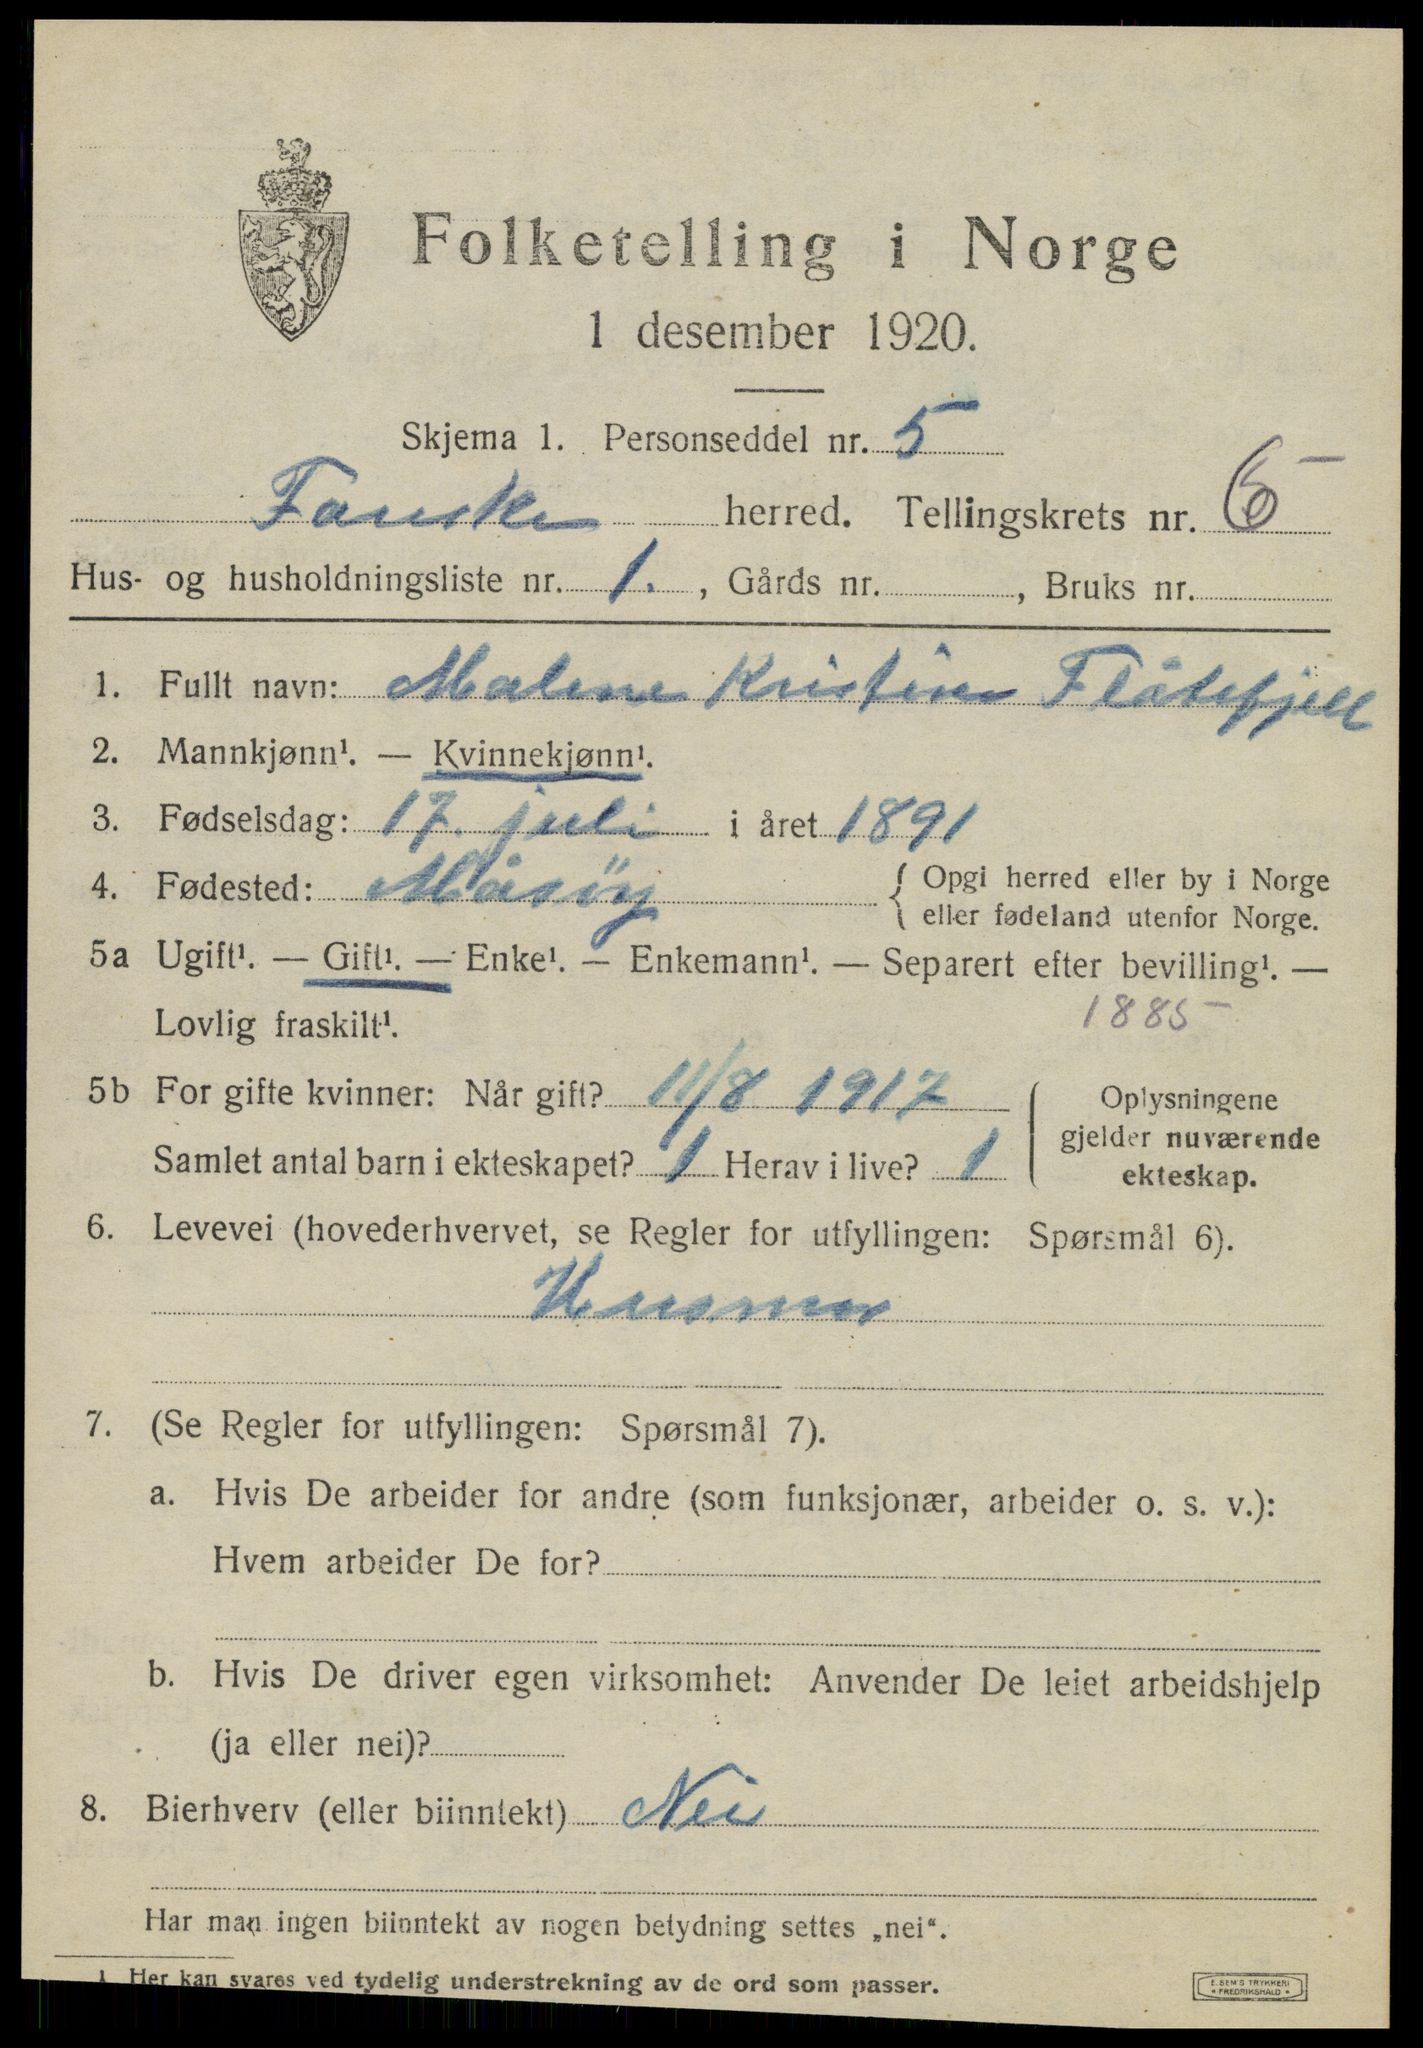 Folketelling i Norge
1 desember 1920.
Skjema 1. Personseddel nr. 5
Fauske herred. Tellingskrets nr. 6
Hus- og husholdningsliste nr. 1. , Gårds nr. , Bruks nr.
1. Fullt navn: Malene Kristine Flåtefjell
2. Mannkjønn¹. — Kvinnekjønn¹.
3. Fødselsdag: 17. juli i året 1891
4. Fødested: Måsöy { Opgi herred eller by i Norge
eller fødeland utenfor Norge.
5a Ugift¹. — Gift¹. — Enke¹. — Enkemann¹. — Separert efter bevilling¹. —
Lovlig fraskilt¹. 1885
5b For gifte kvinner: Når gift? 11/8 1917
Samlet antal barn i ekteskapet? 1 Herav i live? 1
Oplysningene
gjelder nuværende
ekteskap.
6. Levevei (hovederhvervet, se Regler for utfyllingen: Spørsmål 6).
Husmor
7. (Se Regler for utfyllingen: Spørsmål 7).
a. Hvis De arbeider for andre (som funksjonær, arbeider o. s. v.):
Hvem arbeider De for?
b. Hvis De driver egen virksomhet: Anvender De leiet arbeidshjelp
(ja eller nei)?
8. Bierhverv (eller biinntekt) Nei
Har man ingen biinntekt av nogen betydning settes „nei“.
1 Her kan svares ved tydelig understrekning av de ord som passer.
E. SEM'S TRYKKERI
* FREDRIKSHALD *